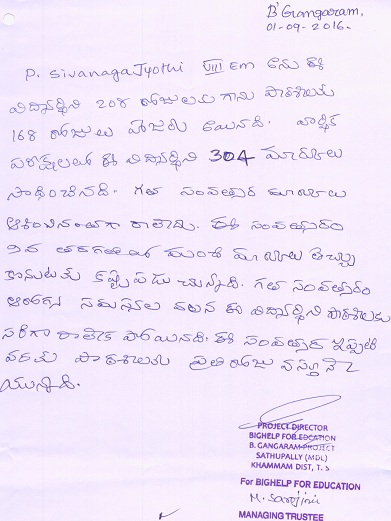 B'Gangaram,
01-09-2016.
P. SivanagaJyothi VIII EM అను ఈ
విద్యార్థిని 208 రోజులకు గాను పాఠశాలకు
168 రోజులు హాజరు అయినది. వార్షిక
పరీక్షలలో ఈ విద్యార్థిని 304 మార్కులు
సాధించినది. గత సంవత్సర మార్కులు
ఆశించినంతగా రాలేదు. ఈ సంవత్సరం
9వ తరగతిలో మంచి మార్కులు తెచ్చు
కొనుటకు కష్టపడు చున్నది. గత సంవత్సరం
ఆరోగ్య సమస్యల వలన ఈ విద్యార్థిని పాఠశాలకు
సరిగా రాలేక పోయినది. ఈ సంవత్సరం ఇప్పటి
వరకు పాఠశాలకు ప్రతి రోజు వస్తూనే
యున్నది.
PROJECT DIRECTOR
BIGHELP FOR EDCATION
B. GANGARAM PROJECT
SATHUPALLY (MDL)
KHAMMAM DIST, T. S
For BIGHELP FOR EDUCATION
M. Sarojini
MANAGING TRUSTEE